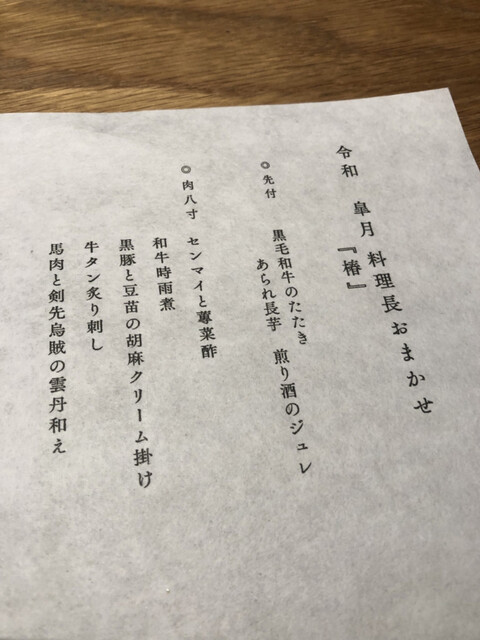 令和　皐月 料理長おまかせ
『椿』
◎先付
黒毛和牛のたたき
あられ長芋　煎り酒のジュレ
◎肉八寸　センマイと蓴菜酢
和牛時雨煮
黒豚と豆苗の胡麻クリーム掛け
牛タン炙り刺し
馬肉と剣先烏賊の雲丹和え